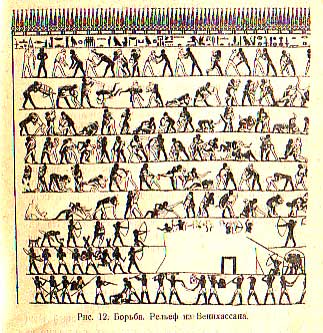 Рис. 12. Борьба. Рельеф из Бенихассана.